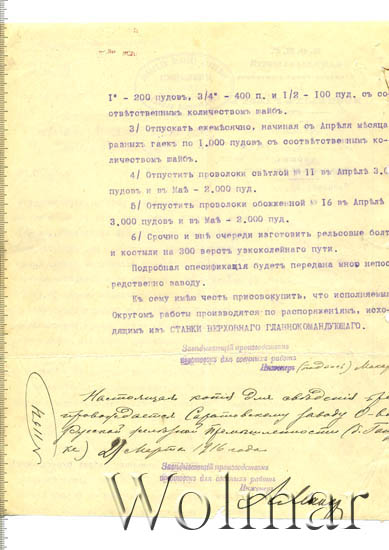 1" - 200 пудовъ, 3/4" - 400 п. и 1/2 - 100 пуд. съ со-
отвѣтственнымъ количествомъ шайбъ.
3/ Отпускать ежемѣсячно, начиная съ Апрѣля мѣсяца
разныхъ гаекъ по 1.000 пудовъ съ соотвѣтственнымъ ко-
личествомъ шайбъ.
4/ Отпустить проволоки свѣтлой № 11 въ Апрѣлѣ 3.0
пудовъ и въ Маѣ - 2.000 пуд.
5/ Отпустить проволоки обожженной № 16 въ Апрѣлѣ
3.000 пудовъ и въ Маѣ - 2.000 пуд.
6/ Срочно и внѣ очереди изготовить рельсовые болт
и костыли на 300 верстъ узкоколейнаго пути.
Подробная спесификація будетъ передана мною непос
редственно заводу.
Къ сему имѣю честь присовокупить, что исполняемыя
Округомъ работы производятся по распоряженіямъ, исхо-
дящимъ изъ СТАВКИ ВЕРХОВНАГО ГЛАВНОКОМАНДУЮЩАГО.
Завѣдывающій производствомъ
для работъ
Инженеръ (подпись) Макар
Настоящая копія для свѣдѣнія пре
провождается Саратовскому заводу О-ва
Русской Промышленности
21 Марта 1916 года
Завѣдывающій производствомъ
для работъ
Инженеръ
Wolmar